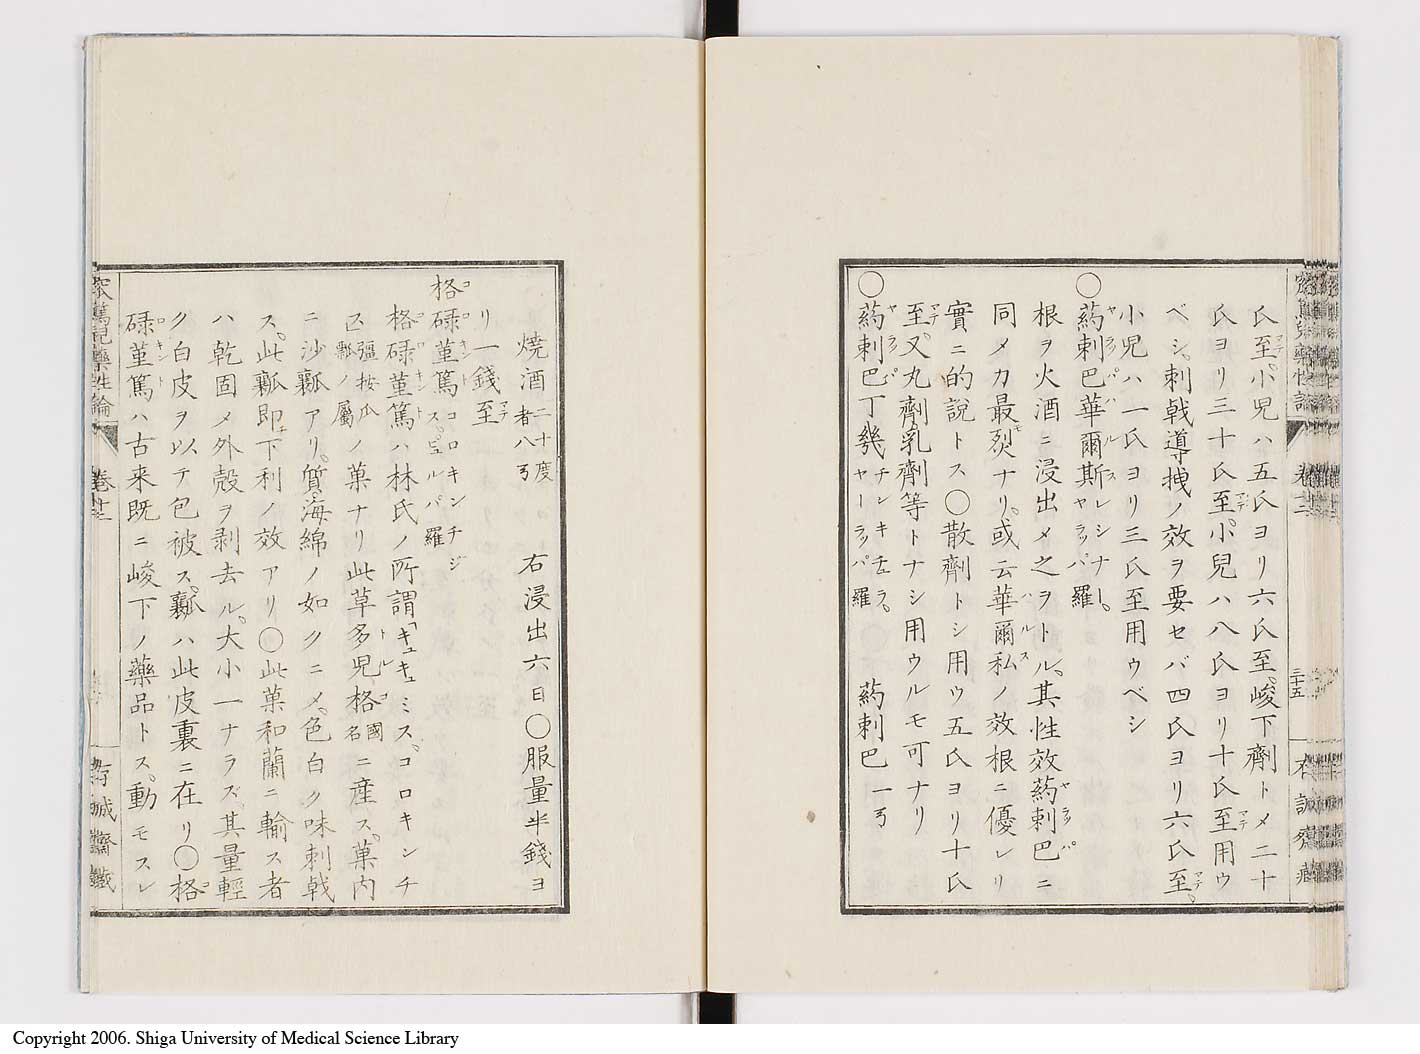 氏至。小児ハ五氏ヨリ六氏至。峻下劑トメ二十
氏ヨリ三十氏至。小兒ハ八氏ヨリ十氏至用ウ
ベシ。刺戟導拽ノ效ヲ要セバ四氏ヨリ六氏至。
小児ハ一氏ヨリ三氏至用ウベシ
〇葯剌巴華爾斯レシナー。ヤラッパ羅
根ヲ火酒ニ浸出メ之ヲトル。其性效葯剌巴ニ
同メカ最烈ナリ。或云華爾私ノ效根ニ優レリ
實ニ的說トス〇散劑トシ用ウ五氏ヨリ十氏
至。又丸劑乳劑等トナシ用ウルモ可ナリ
〇葯剌巴丁幾チンキチュラ。ヤーラッパ羅 葯剌巴一ㄢ
三十五
燒酒二十度者八ㄢ 右浸出六日〇服量半錢ヨ
リ一錢至
格碌菫篤コロキンチジス。ピュルパ羅
格碌菫篤ハ林氏ノ所謂「キュキュミス。コロキンチ
ス彊按瓜瓢ノ屬ノ菓ナリ此草多児格國名ニ產ス。菓内
ニ沙瓤アリ。質海綿ノ如クニメ。色白ク味刺戟
ス。此瓤即下利ノ效アリ〇此菓和蘭ニ輸ス者
ハ乾固メ外殼ヲ剥去ル。大小一ナラズ。其量輕
ク白皮ヲ以テ包被ス。瓤ハ此皮裏ニ在リ〇格
碌菫篤ハ古来既ニ峻下ノ藥品トス。動モスレ
Copyright 2006. Shiga University of Medical Science Library